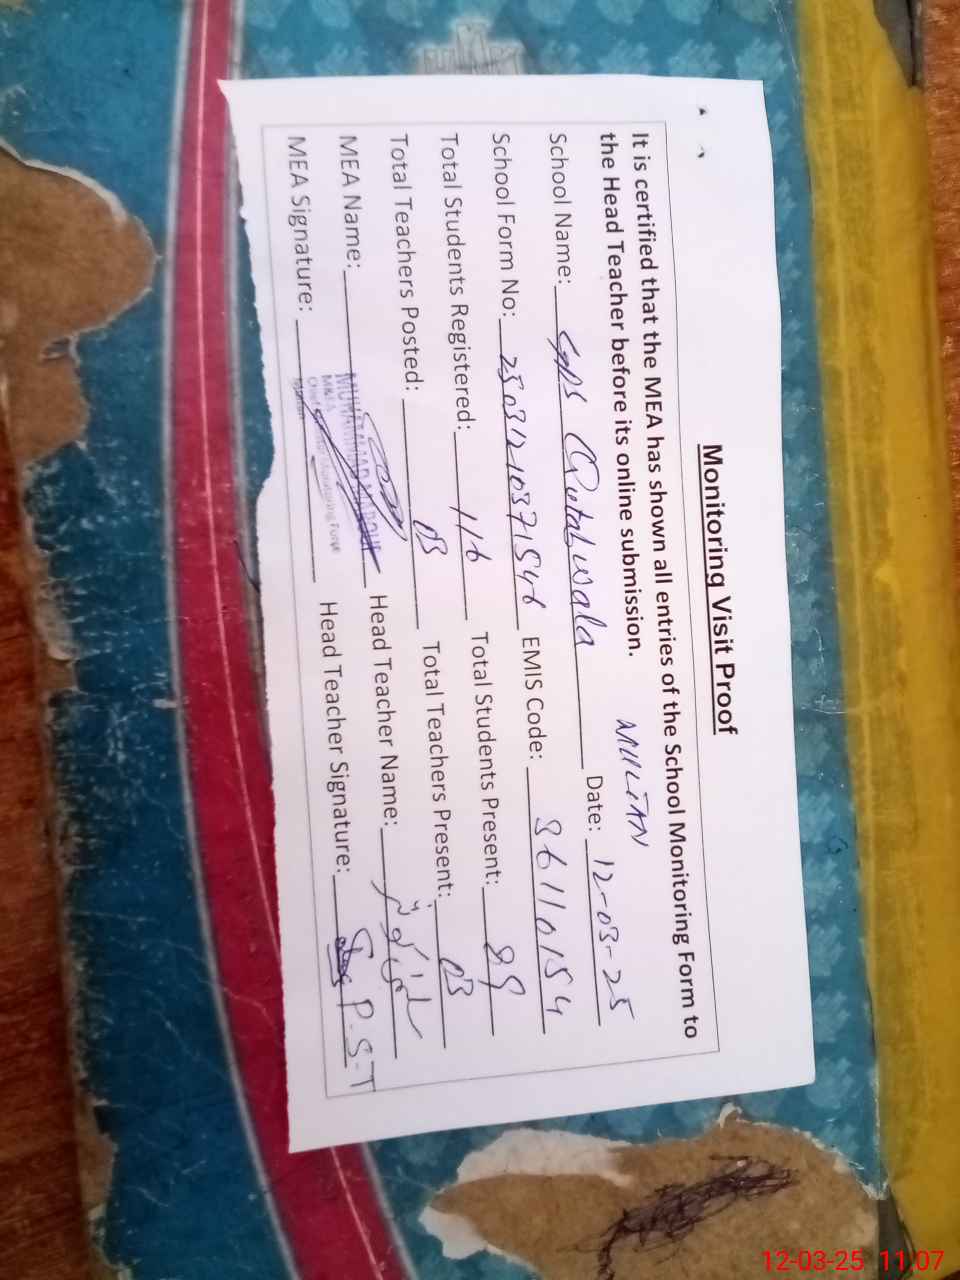 Monitoring Visit Proof
It is certified that the MEA has shown all entries of the School Monitoring Form to
the Head Teacher before its online submission. MULTAN
School Name: GPS Qutab wala Date: 12-03-25
School Form No: 25031210371546 EMIS Code: 36110154
Total Students Registered: 116 Total Students Present: 89
Total Teachers Posted: 03 Total Teachers Present: 03
MEA Name: MUHAMMAD Head Teacher Name:
MEA Signature: Head Teacher Signature: P.S.T
12-03-25 11:07